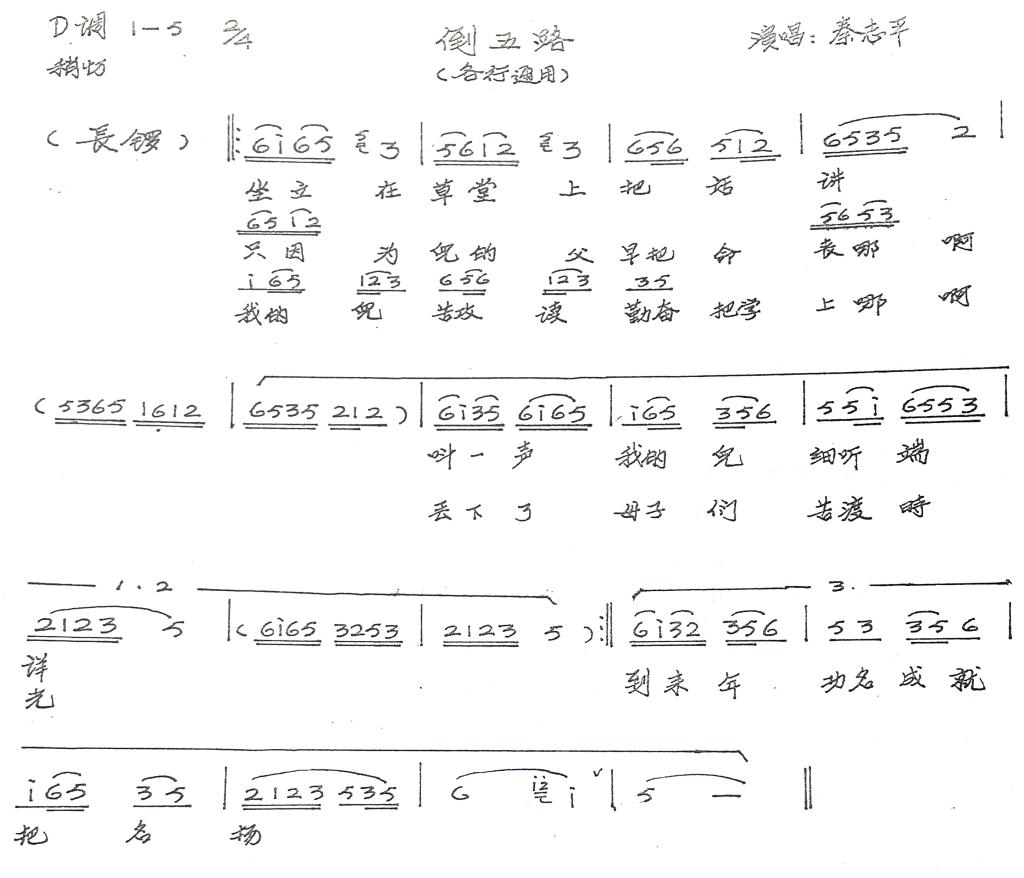 D调 1—5 2/4 倒五路 演唱：秦志平
稍快 （各行通用）
（長锣） ‖: 6i65 3 | 56i2 3 | 656 5i2 | 6535 2 |
坐立 在 草堂 上 把 话 讲
65i2 5653
只因 为 儿的 父 早把 命 丧哪 啊
i65 123 656 123 35
我的 儿 苦攻 读 勤奋 把学 上哪 啊
（5365 1612 | 6535 212） | 6i35 6i65 | i65 356 | 55i 6553 |
叫一 声 我的 儿 细听 端
丢下 了 母子 们 苦渡 時
1. 2 3.
2123 5 |（6i65 3253 | 2123 5）:‖ 6i32 356 | 53 356 |
详 到来 年 功名 成就
光
i65 35 | 2123 535 | 6 i2 i ∨ | 5 — ‖
把 名 扬